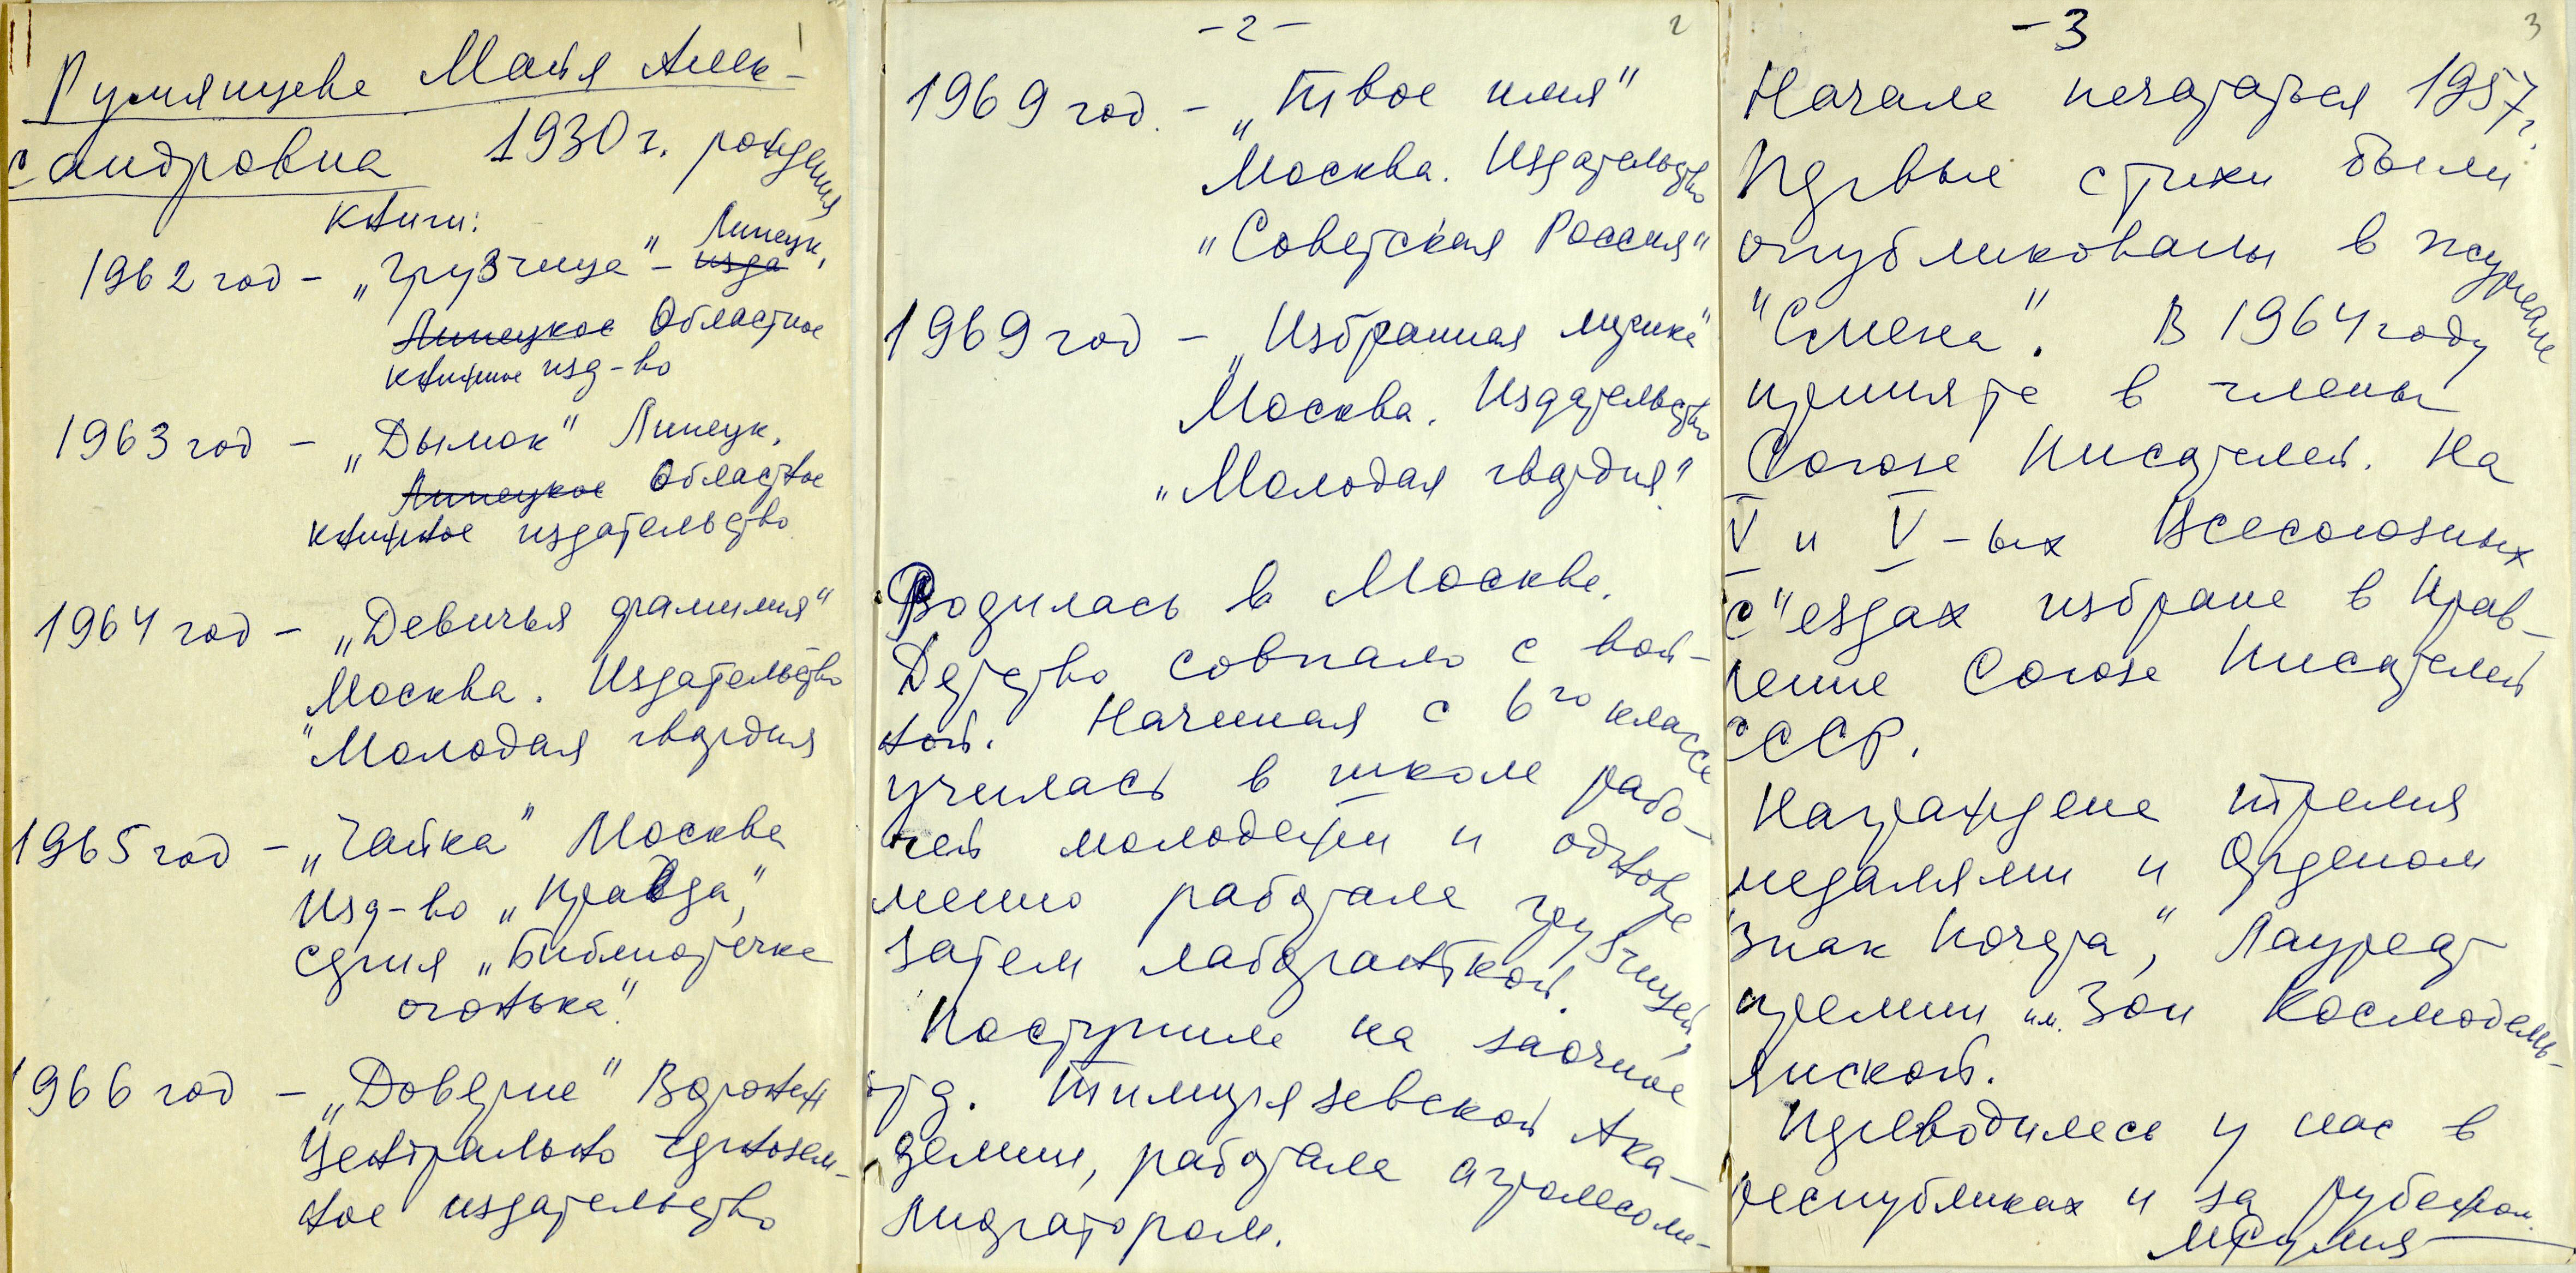 1
Румянцева Майя Алек-
сандровна 1930 г. рождения
Книги:
1962 год – „Грузчица" – изда Липецк,
Липецкое Областное
книжное изд-во
1963 год – „Дымок" Липецк,
Липецкое Областное
книжное издательство
1964 год – „Девичья фамилия"
Москва. Издательство
"Молодая гвардия
1965 год – „Чайка" Москва
Изд-во „Правда",
серия „Библиотечка
огонька".
1966 год – „Доверие" Воронеж
Центрально черnозем-
ное издательство
– 2 – 2
1969 год. – „Твое имя"
Москва. Издательство
"Советская Россия"
1969 год – „Избранная лирика"
Москва. Издательство
„Молодая гвардия"
Родилась в Москве.
Детство совпало с вой-
ной. Начиная с 6го класса
училась в школе рабо-
чей молодежи и одновре
менно работала грузчицей,
затем лаборанткой.
Поступила на заочное
отд. Тимирязевской Ака-
демии, работала агролесоме-
лиоратором.
– 3 3
Начала печататься 1957 г.
Первые стихи были
опубликованы в журнале
"Смена". В 1964 году
принята в члены
Союза Писателей. На
V и V – ых Всесоюзных
с"ездах избрана в Прав-
ление Союза Писателей
СССР.
Награждена тремя
медалями и Орденом
Знак Почета", Лауреат
премии им. Зои Космодемь-
янской.
Переводилась у нас в
республиках и за рубежом.